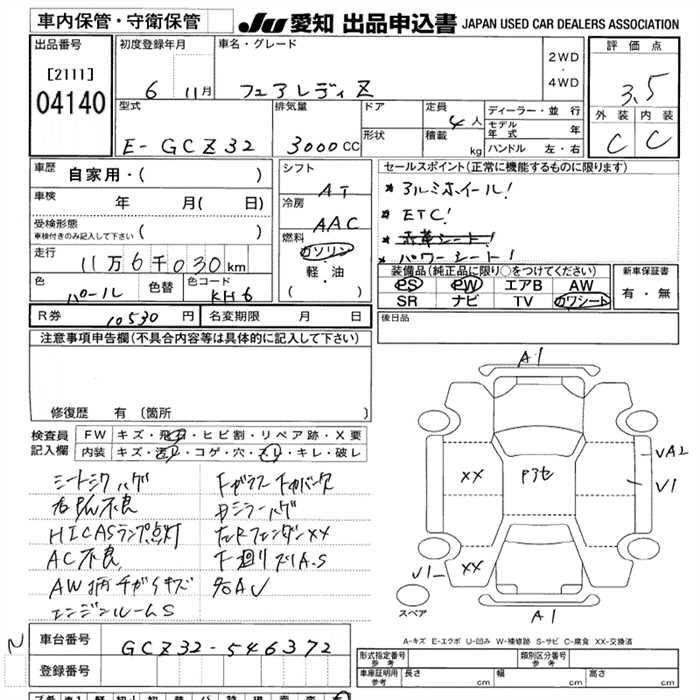 車内保管・守衛保管
JU 愛知 出品申込書 JAPAN USED CAR DEALERS ASSOCIATION
出品番号
[2111]
04140
初度登録年月
6 11月
車名・グレード
フェアレディZ
2WD
・
4WD
評価点
3.5
外装 内装
C C
型式
E-GCZ32
排気量
3000cc
ドア
形状
定員
4人
積載
kg
ディーラー・並行
モデル年式 年
ハンドル 左・右
車歴
自家用・( )
車検
年 月( 日)
受検形態
車検付きのみ記入して下さい ( )
走行
11万6千030km
色
パール
色替
色コード
KH6
シフト
AT
冷房
AAC
燃料
ガソリン
・
軽・油
( )
セールスポイント(正常に機能するものに限ります)
* アルミホイール!
* ETC!
* 赤革シート!
* パワーシート!
装備品(純正品に限り○をつけてください)
PS PW エアB AW
SR ナビ TV カワシート
新車保証書
有・無
R券 10530円 名変期限 月 日
後日品
注意事項申告欄(不具合内容等は具体的に記入して下さい)
修復歴 有 (箇所 )
検査員記入欄
FW キズ・飛石・ヒビ割・リペア跡・X要
内装 キズ・汚レ・コゲ・穴・スレ・キレ・破レ
シートシワハゲ
右PW不良
HICASランプ点灯
AC不良
AW柄チガイキズ
エンジンルームS
Bミラーハゲ
左RフェンダーXX
下廻りズレA.S
A1
XX
Pアセ
VA2
V1
XX
V1
スペア
A1
A-キズ E-エクボ U-凹み W-補修跡 S-サビ C-腐食 XX-交換済
N
車台番号
GCZ32-546372
登録番号
形式指定番号
参考
類別区分番号
参考
車庫証明用
参考
長さ cm 幅 cm 高さ cm